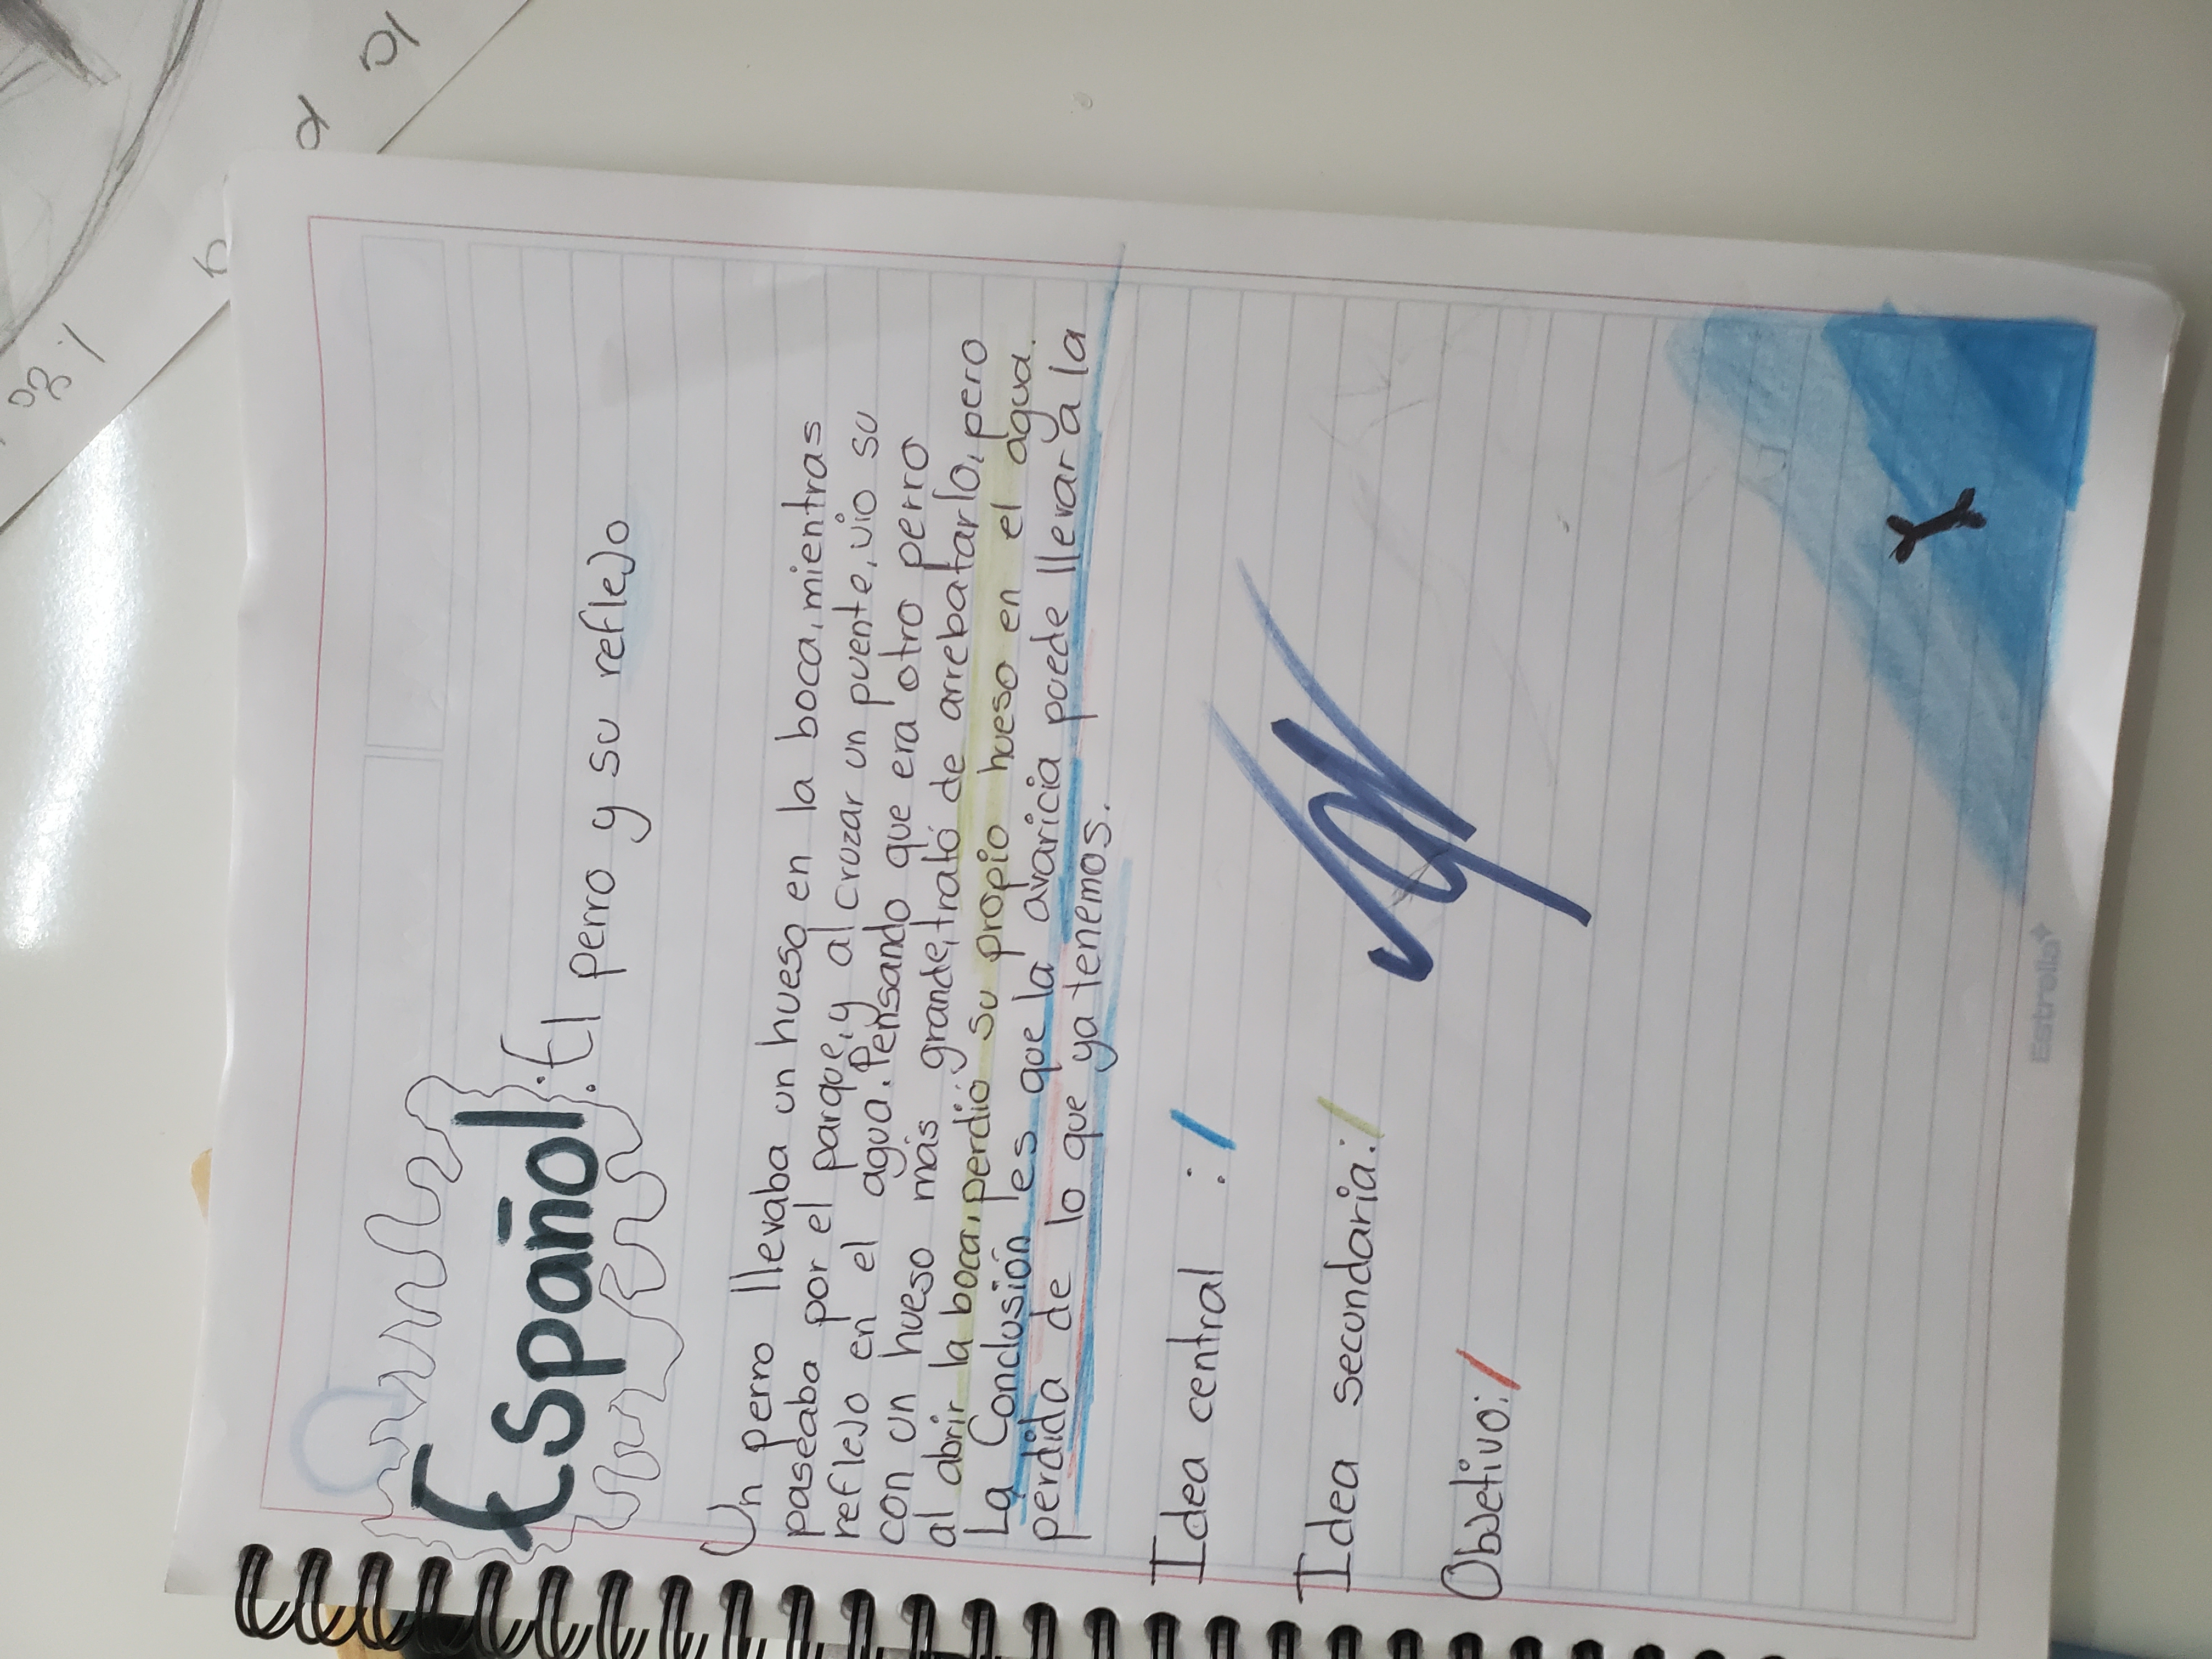 Español:
El perro y su reflejo
Un perro llevaba un hueso en la boca, mientras
paseaba por el parque, y al cruzar un puente, vio su
reflejo en el agua. Pensando que era otro perro
con un hueso más grande, trató de arrebatarlo, pero
al abrir la boca, perdió su propio hueso en el agua.
La Conclusión es que la avaricia puede llevar a la
perdida de lo que ya tenemos.
Idea central : /
Idea secundaria: /
Objetivo: /
Estrella